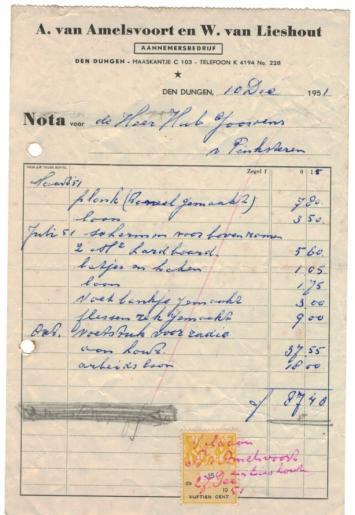 A. van Amelsvoort en W. van Lieshout
AANNEMERSBEDRIJF
DEN DUNGEN - MAASKANTJE C 103 - TELEFOON K 4194 No. 228
DEN DUNGEN, 10 Dec 1951
Nota voor de Heer Hub
Zegel f 0 15
51
plank gemaakt 7.80
loon 3.50
Juli 51 schermen voor bovenramen
2 M² hardboard 5.60
en haken 1.05
loon 1.75
Voetbankje gemaakt 3.00
flessenrek gemaakt 9.00
Oct. Voetstuk voor radio
aan hout 37.55
arbeidsloon 18.00
f 87.40
Voldaan
Amelsvoort
Lieshout
Dec
19 51
VIJFTIEN CENT